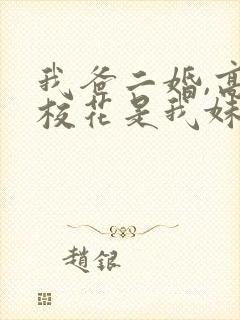 我爸二婚,高
校花是我妹
趙銀